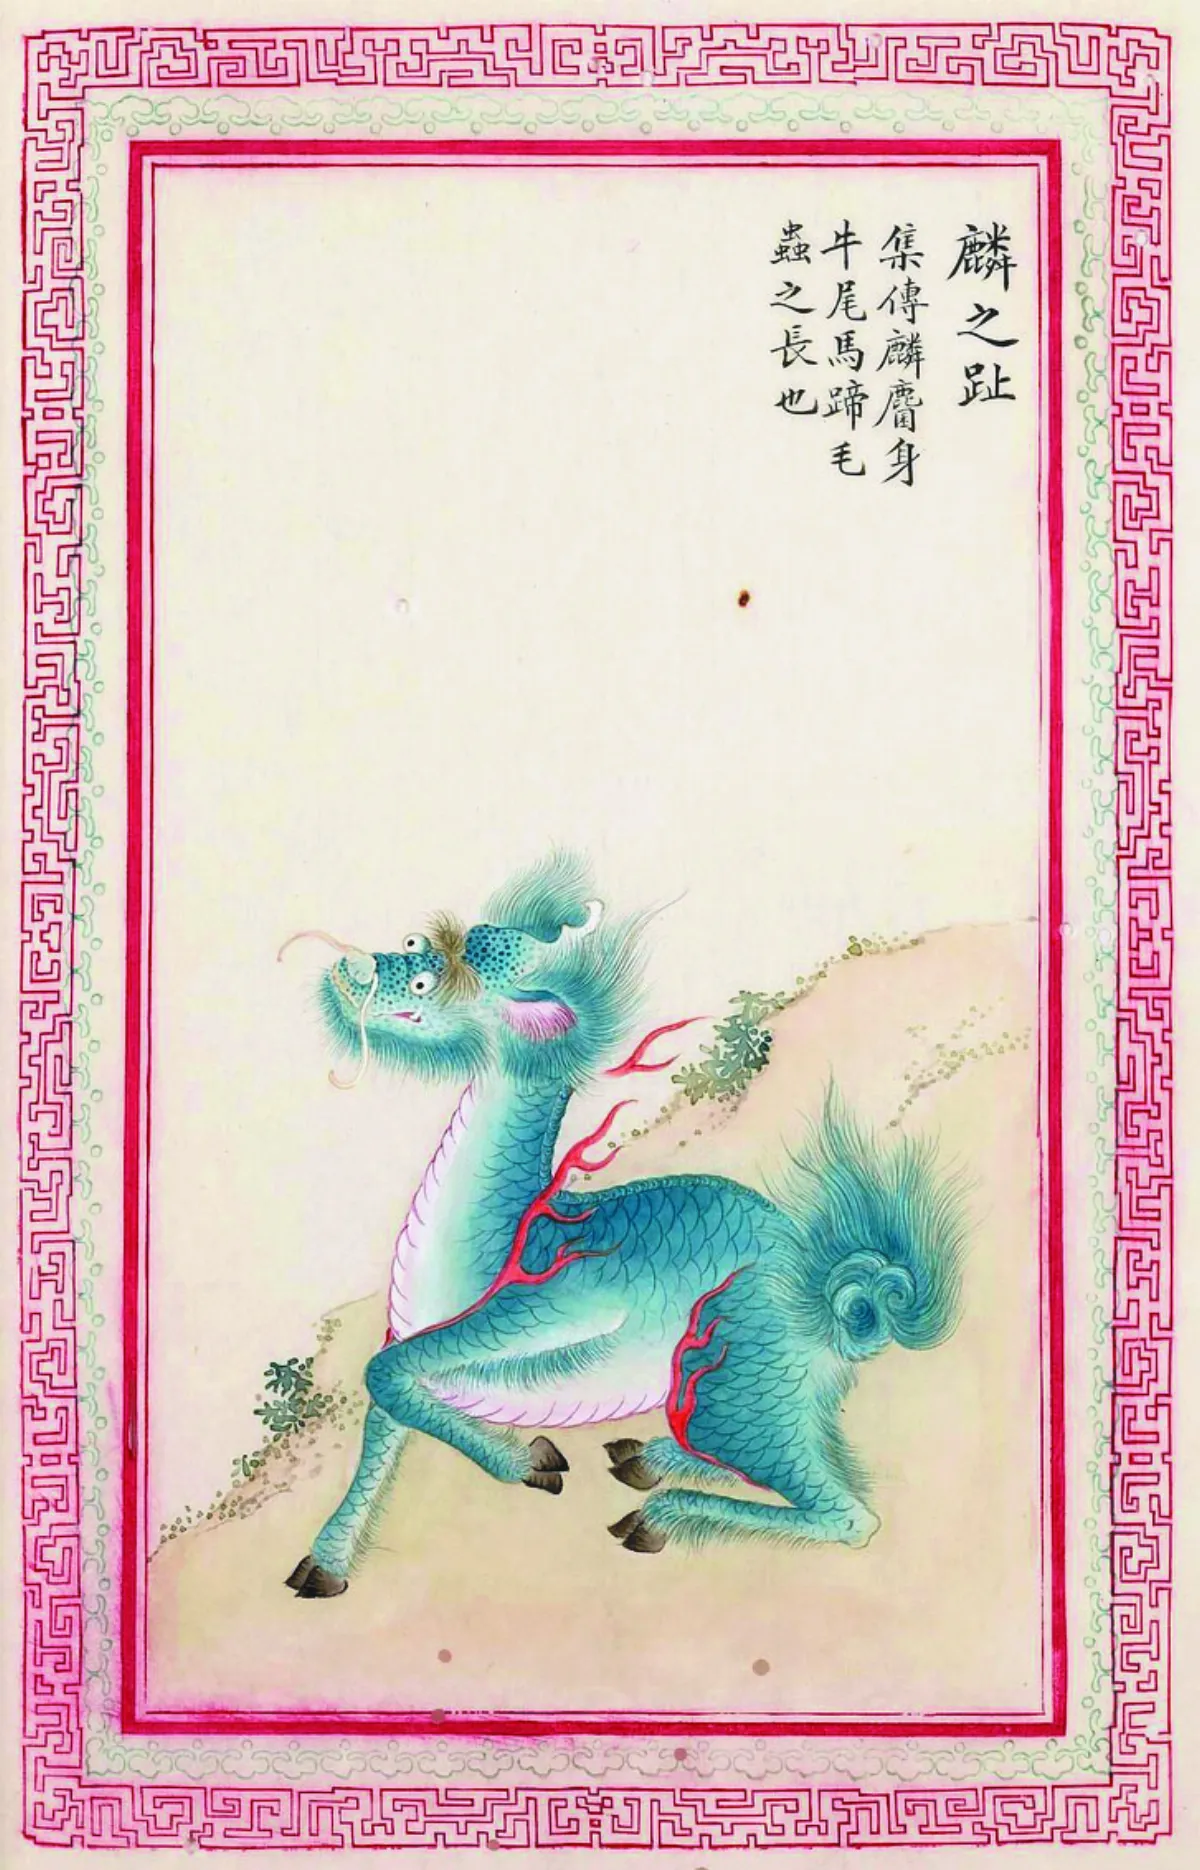 麟之趾
集傳麟麕身
牛尾馬蹄毛
蟲之長也